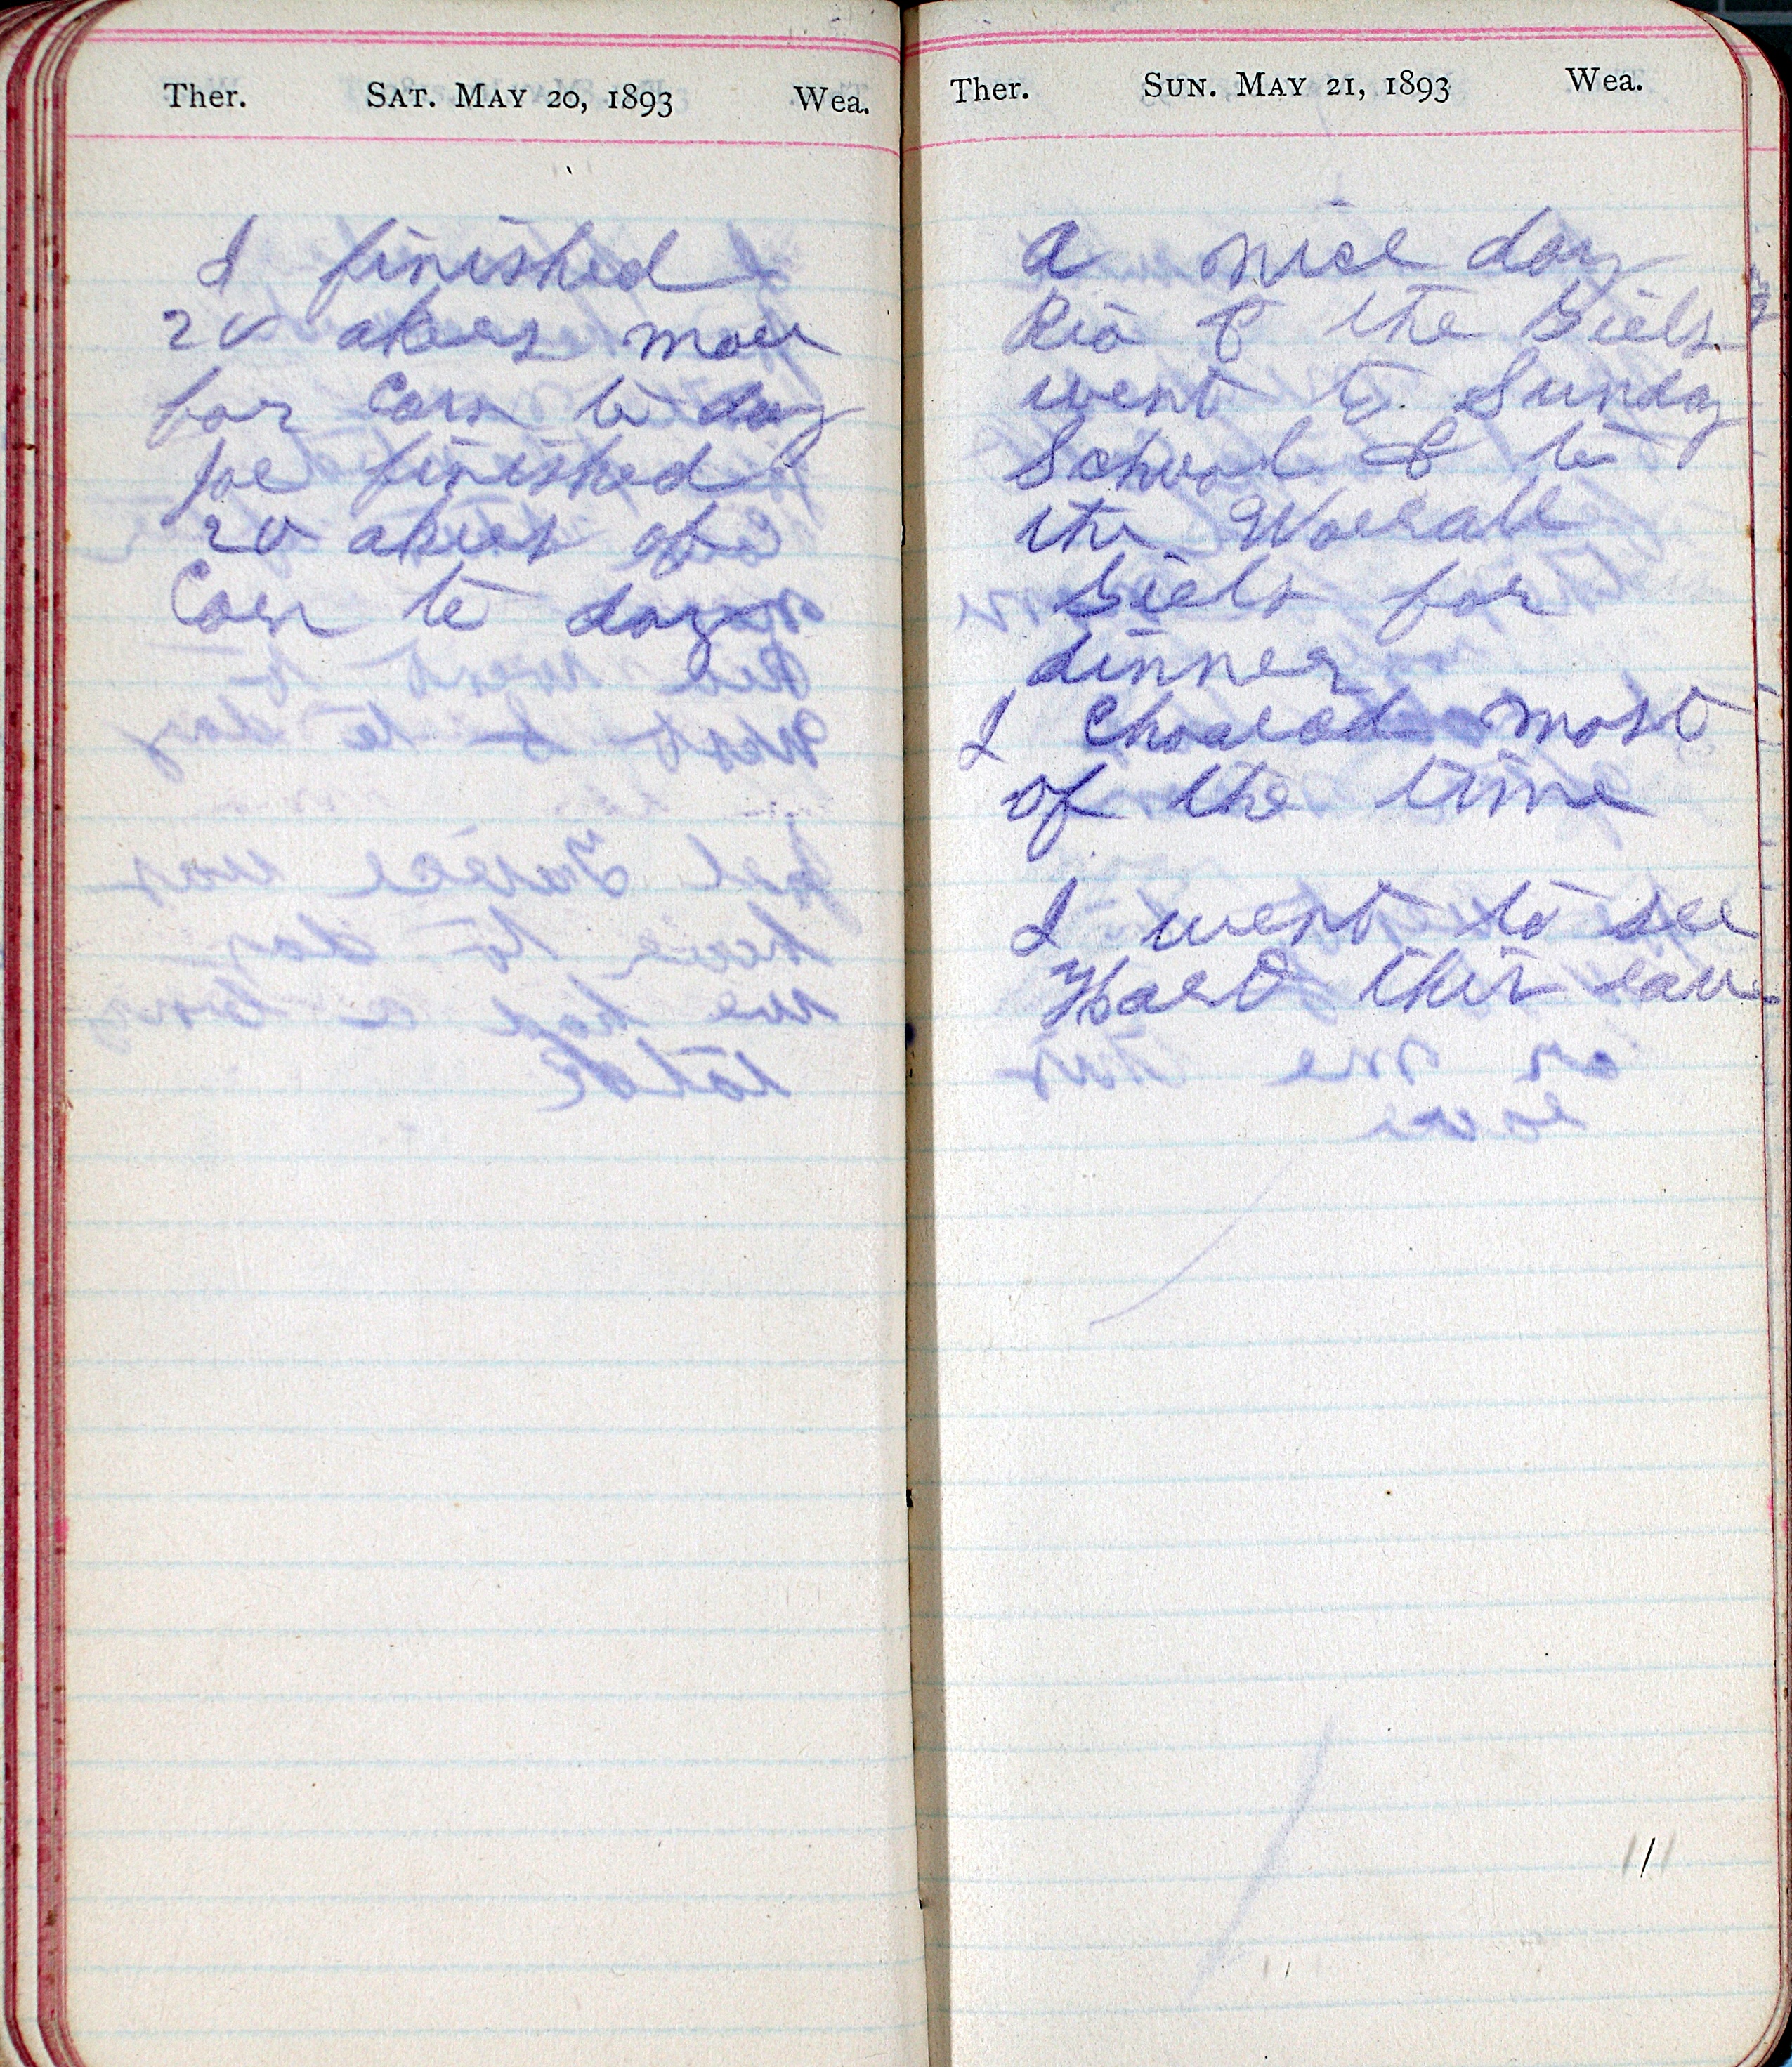 Ther. SAT. MAY 20, 1893 Wea.
I finished
20 akers more
for Corn to day
Joe finished
20 akers of
Corn to day
Ther. SUN. MAY 21, 1893 Wea.
a nice day
Rio & the Girls
went to Sunday
School & to
the Worrall
Girls for
dinner
I Choared most
of the time
I went to see
this eave